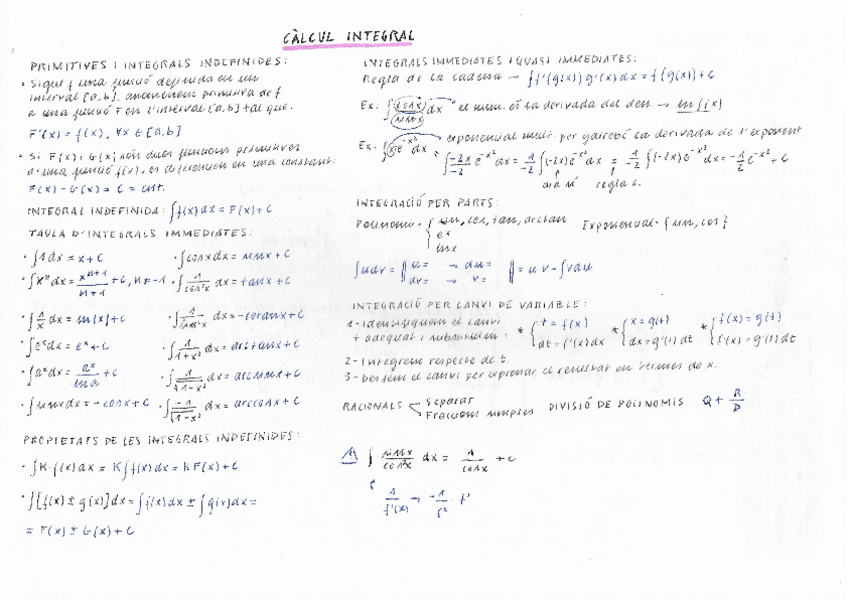 CÀLCUL INTEGRAL
PRIMITIVES I INTEGRALS INDEFINIDES:
• Sigui f una funció definida en un
interval [a,b], anomenem primitiva de f
a una funció F en l'interval [a,b] tal que:
F'(x) = f(x), ∀x ∈ [a,b]
• Si F(x) i G(x) són dues funcions primitives
d'una funció f(x), es diferencien en una constant:
F(x) - G(x) = C = cnt.
INTEGRAL INDEFINIDA: ∫f(x)dx = F(x)+C
TAULA D'INTEGRALS IMMEDIATES:
• ∫1dx = x+C • ∫cosxdx = sinx + C
• ∫xⁿdx = xⁿ⁺¹/n+1 + C, n≠-1 • ∫1/cos²x dx = tanx + C
• ∫1/x dx = ln|x|+C • ∫1/sin²x dx = -cotanx + C
• ∫eˣdx = eˣ+C • ∫1/1+x² dx = arctanx + C
• ∫aˣdx = aˣ/lna + C • ∫1/√1-x² dx = arcsinx + C
• ∫sinxdx = -cosx + C • ∫-1/√1-x² dx = arccosx + C
PROPIETATS DE LES INTEGRALS INDEFINIDES:
• ∫K·f(x)dx = K∫f(x)dx = KF(x)+C
• ∫[f(x) ± g(x)]dx = ∫f(x)dx ± ∫g(x)dx =
= F(x) ± G(x) + C
INTEGRALS IMMEDIATES I QUASI IMMEDIATES:
Regla de la cadena → ∫f'(g(x)) g'(x) dx = f(g(x)) + C
Ex: ∫cosx/sinx dx el num. és la derivada del den. → ln f(x)
Ex: ∫xe^-x² dx = exponencial mult. per gairebé la derivada de l'exponent
∫-2x/-2 e^-x² dx = 1/-2 ∫(-2x)e^-x² dx = 1/-2 ∫(-2x)e^-x² dx = -1/2 e^-x² + C
ara sí regla c.
INTEGRACIÓ PER PARTS:
Polinomi · { sin, cos, tan, arctan Exponencial · {sin, cos}
eˣ
lnx
∫udv = ‖ u= → du= ‖ = u·v - ∫vdu
dv= → v=
INTEGRACIÓ PER CANVI DE VARIABLE:
1- Identifiquem el canvi
+ adequat i substituïm: * { t = f(x) * { x = g(t) * { f(x) = g(t)
dt = f'(x)dx dx = g'(t) dt f'(x) = g'(t)dt
2- Integrem respecte de t.
3- Desfem el canvi per expressar el resultat en termes de x.
RACIONALS Separar
Fraccions simples DIVISIÓ DE POLINOMIS Q + R/D
∫ sinx/cos²x dx = 1/cosx + C
1/f(x) → -1/f² · f'